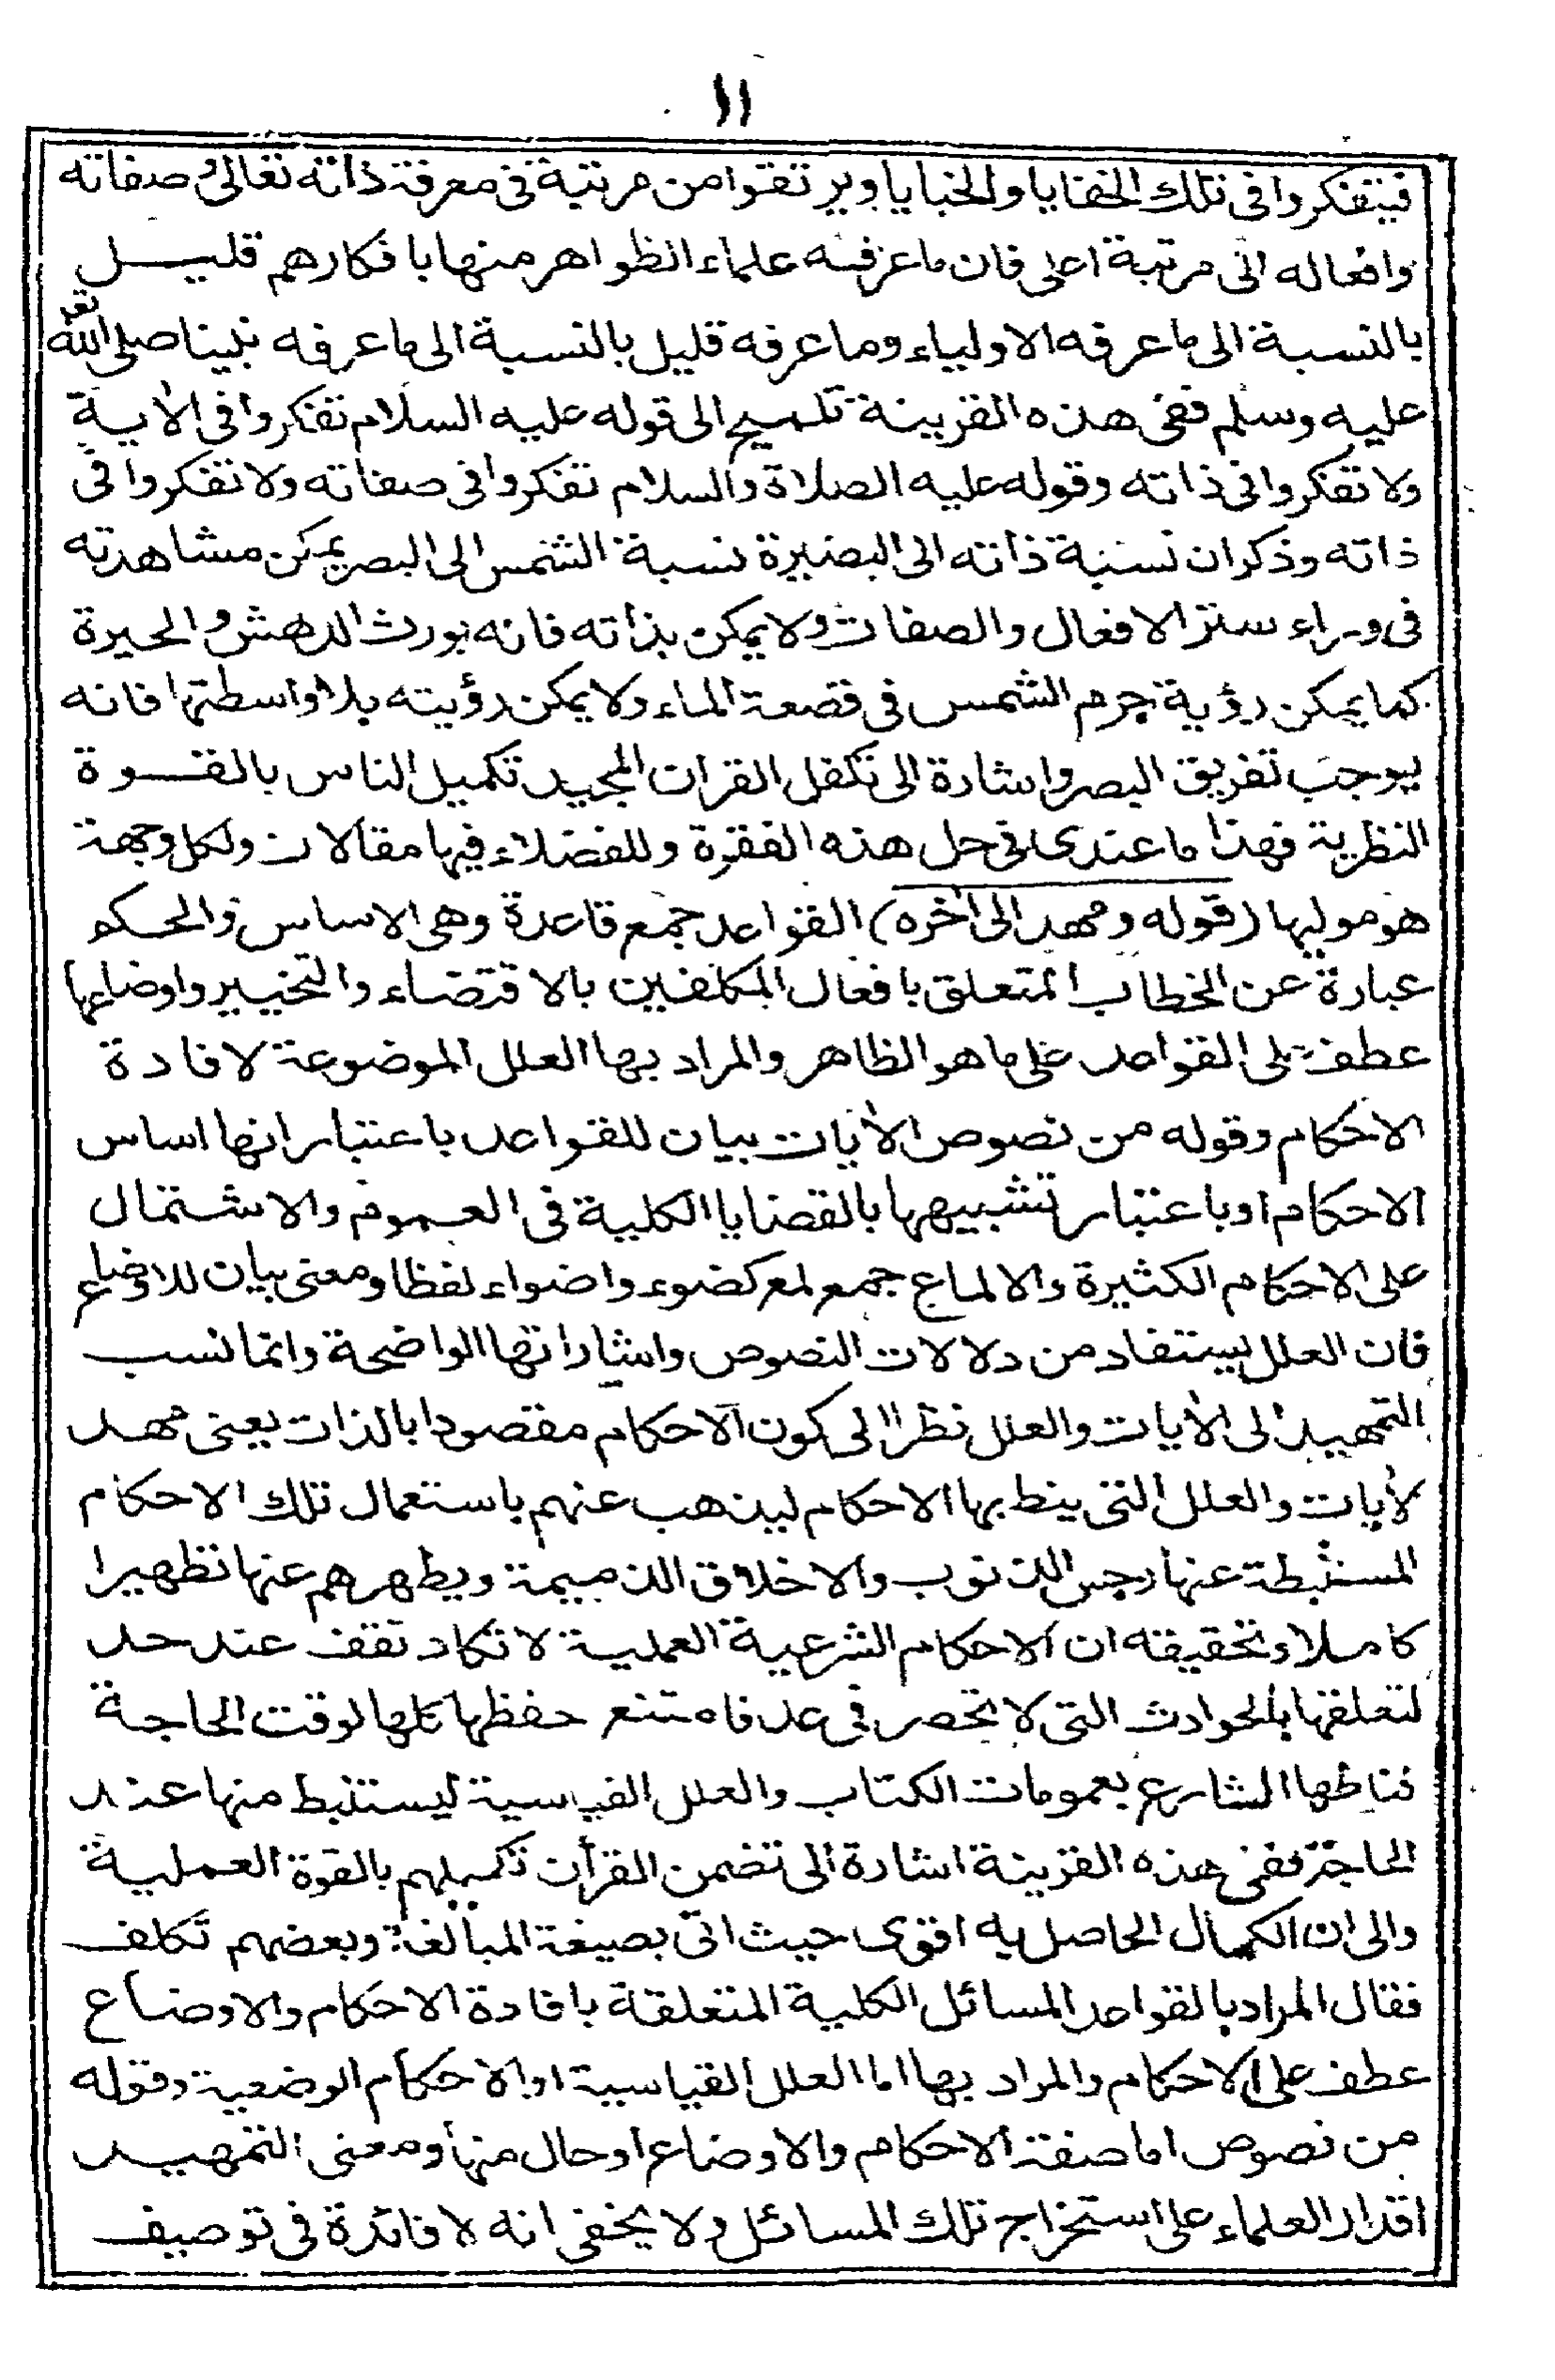 ١١
فيتفكروا فى تلك الخفايا والخبايا ويرتقوا من مرتبة فى معرفة ذاته تعالى وصفاته
وافعاله الى مرتبة اعلى فان ما عرفه علماء الظواهر منها بافكارهم قليل
بالنسبة الى ما عرفه الاولياء وما عرفه قليل بالنسبة الى ما عرفه نبينا صلى الله تع
عليه وسلم ففى هذه القرينة تلميح الى قوله عليه السلام تفكروا فى الأية
ولا تفكروا فى ذاته وقوله عليه الصلاة والسلام تفكروا فى صفاته ولا تفكروا فى
ذاته وذكر ان نسبة ذاته الى البصيرة نسبة الشمس الى البصر يمكن مشاهدته
فى وراء ستر الافعال والصفات ولا يمكن بذاته فانه يورث الدهش والحيرة
كما يمكن رؤية جرم الشمس فى قصعة الماء ولا يمكن رؤيته بلا واسطتها فانه
يوجب تفريق البصر واشارة الى تكفل القران المجيد تكميل الناس بالقوة
النظرية فهذا ما عندى فى حل هذه الفقرة وللفضلاء فيها مقالات ولكل وجهة
هو موليها (قوله ومهد الى اخره) القواعد جمع قاعدة وهى الاساس والحكم
عبارة عن الخطاب المتعلق بافعال المكلفين بالاقتضاء والتخيير واوضاعها
عطف على القواعد على ما هو الظاهر والمراد بها العلل الموضوعة لافادة
الاحكام وقوله من نصوص الأيات بيان للقواعد باعتبار انها اساس
الاحكام او باعتبار تشبيهها بالقضايا الكلية فى العموم والاشتمال
على الاحكام الكثيرة والالماع جمع لمع كضوء واضواء لفظا ومعنى بيان للاوضاع
فان العلل يستفاد من دلالات النصوص واشاراتها الواضحة وانما نسب
التمهيد الى الأيات والعلل نظرا الى كون الاحكام مقصودا بالذات يعنى مهد
لأيات والعلل التى ينط بها الاحكام ليذهب عنهم باستعمال تلك الاحكام
المستنبطة عنها رجس الذنوب والاخلاق الذميمة ويطهرهم عنها تطهيرا
كاملا وتحقيقه ان الاحكام الشرعية العملية لا تكاد تقف عند حد
لتعلقها بالحوادث التى لا تحصر فى عد فامتنع حفظها كلها لوقت الحاجة
فناطها الشارع بعمومات الكتاب والعلل القياسية ليستنبط منها عند
الحاجة ففى هذه القرينة اشارة الى تضمن القرأن تكميلهم بالقوة العملية
والى ان الكمال الحاصل به اقوى حيث اتى بصيغة المبالغة وبعضهم تكلف
فقال المراد بالقواعد المسائل الكلية المتعلقة بافادة الاحكام والاوضاع
عطف على الاحكام والمراد بها اما العلل القياسية او الاحكام الوضعية وقوله
من نصوص اما صفة الاحكام والاوضاع او حال منها ومعنى التمهيد
اقدار العلماء على استخراج تلك المسائل ولا يخفى انه لا فائدة فى توصيف